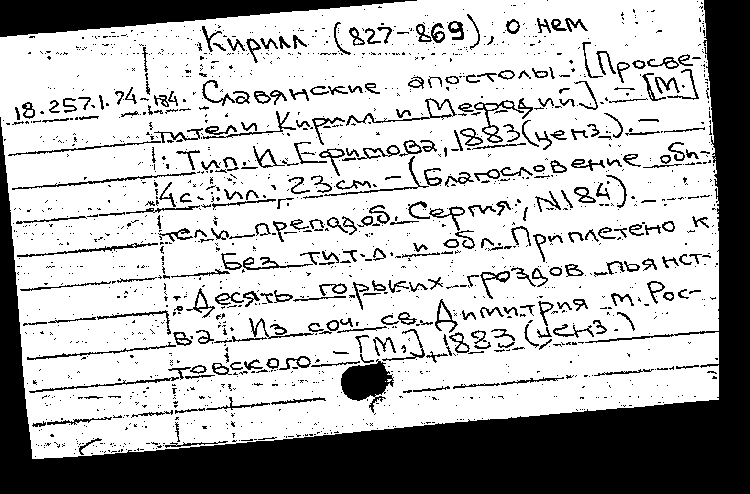 Кирилл (827-869), о нем
18.257.1.74-184. Славянские апостолы : [Просве-
тители Кирилл и Мефодий]. - [М.]
: Тип. И. Ефимова, 1883 (ценз.). -
4с. : ил. ; 23см. - (Благословение оби-
тели преподоб. Сергия ; N184).
Без тит. л. и обл. Приплетено к
: Десять горьких гроздов пьянст-
ва : Из соч. св. Димитрия м. Рос-
товского. - [М.], 1883 (ценз.)